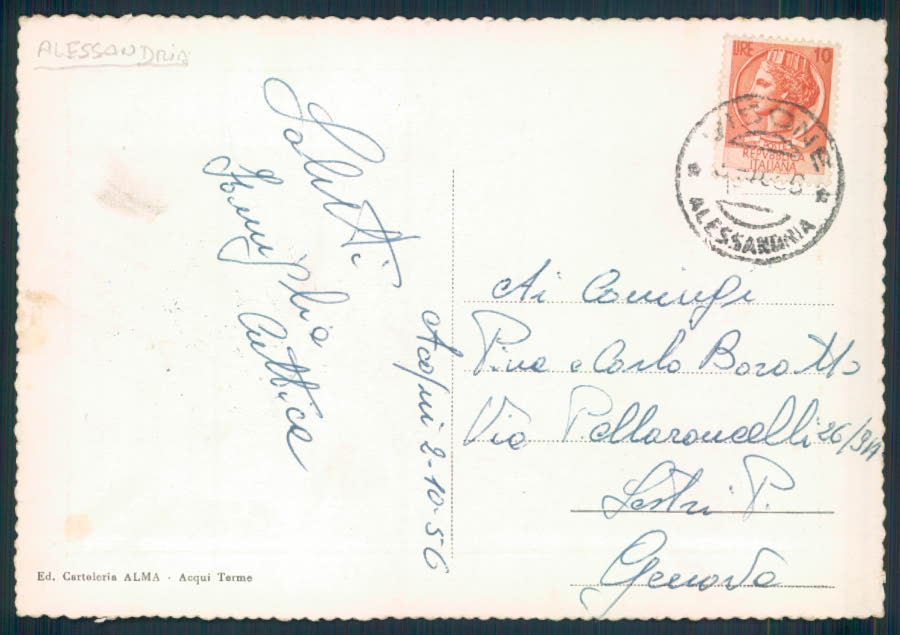 ALESSANDRIA
LIRE 10
POSTE
REPVBBLICA
ITALIANA
VISONE
ALESSANDRIA
Saluti
Famiglia
Cattice
Acqui 2-10-56
Ai Coniugi
Pina e Carlo Boratto
Via P. Maroncelli 26/
Sestri P.
Genova
Ed. Cartoleria ALMA - Acqui Terme